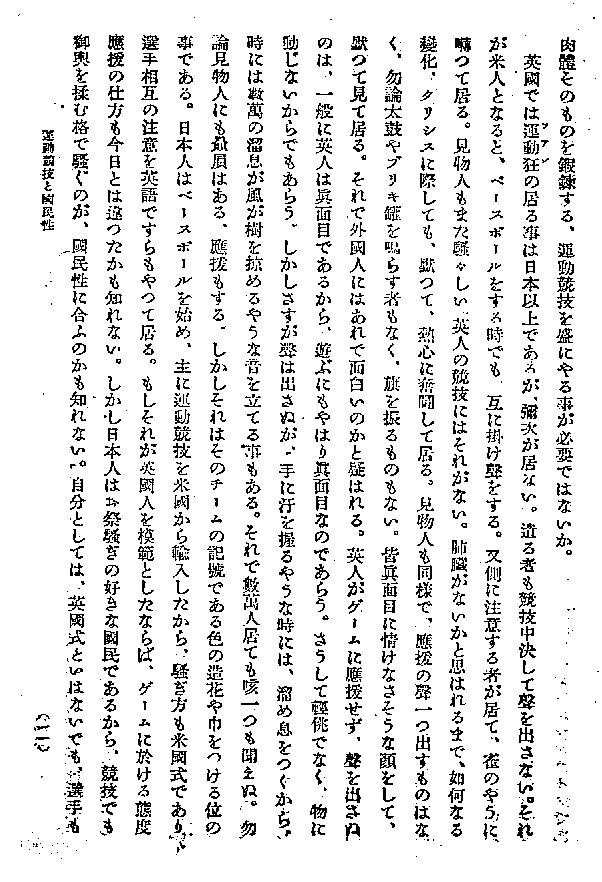 肉體そのものを鍛鍊する、運動競技を盛にやる事が必要ではないか。
英國では運動狂の居る事は日本以上であるが、彌次が居ない。遣る者も競技中決して聲を出さない。それ
ファン
が米人となると、ベースボールをする時でも、互に掛け聲をする。又側に注意する者が居て、雀のやうに
囀つて居る。見物人もまた騷々しい。英人の競技にはそれがない。肺臟がないかと思はれるまで、如何なる
變化、クリシスに際しても、默つて、熱心に奮鬪して居る。見物人も同樣で、應援の聲一つ出すものはな
く、勿論太鼓やブリキ罐を鳴らす者もなく、旗を振るものもない。皆眞面目に情けなさそうな顏をして、
默つて見て居る。それで外國人にはあれで面白いのかと疑はれる。英人がゲームに應援せず、聲を出さぬ
のは、一般に英人は眞面目であるから、遊ぶにもやはり眞面目なのであらう。さうして輕佻でなく、物に
動じないからでもあらう。しかしさすが聲は出さぬが、手に汗を握るやうな時には、溜め息をつくから、
時には數萬の溜息が風が樹を掠めるやうな音を立てる事もある。それで數萬人居ても咳一つも聞えぬ。勿
論見物人にも贔屓はある、應援もする。しかしそれはそのチームの記號である色の造花や巾をつける位の
事である。日本人はベースボールを始め、主に運動競技を米國から輸入したから、騷ぎ方も米國式であり、
選手相互の注意を英語ですらもやつて居る。もしそれが英國人を模範としたならば、ゲームに於ける態度
應援の仕方も今日とは違つたかも知れない。しかし日本人はお祭騷ぎの好きな國民であるから、競技でも
御輿を揉む格で騷ぐのが、國民性に合ふのかも知れない。自分としては、英國式といはないでも、選手も
運動競技と國民性
(一一)